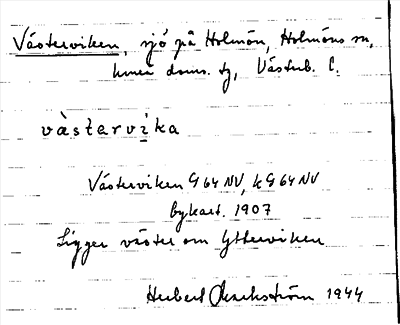 Västerviken, sjö på Holmön, Holmöns sn,
Umeå doms. tg, Västerb. l.
vàstervika
Västerviken G 64 NV, k G 64 NV
bykart. 1907
Ligger väster om Ytterviken
Herbert 1944